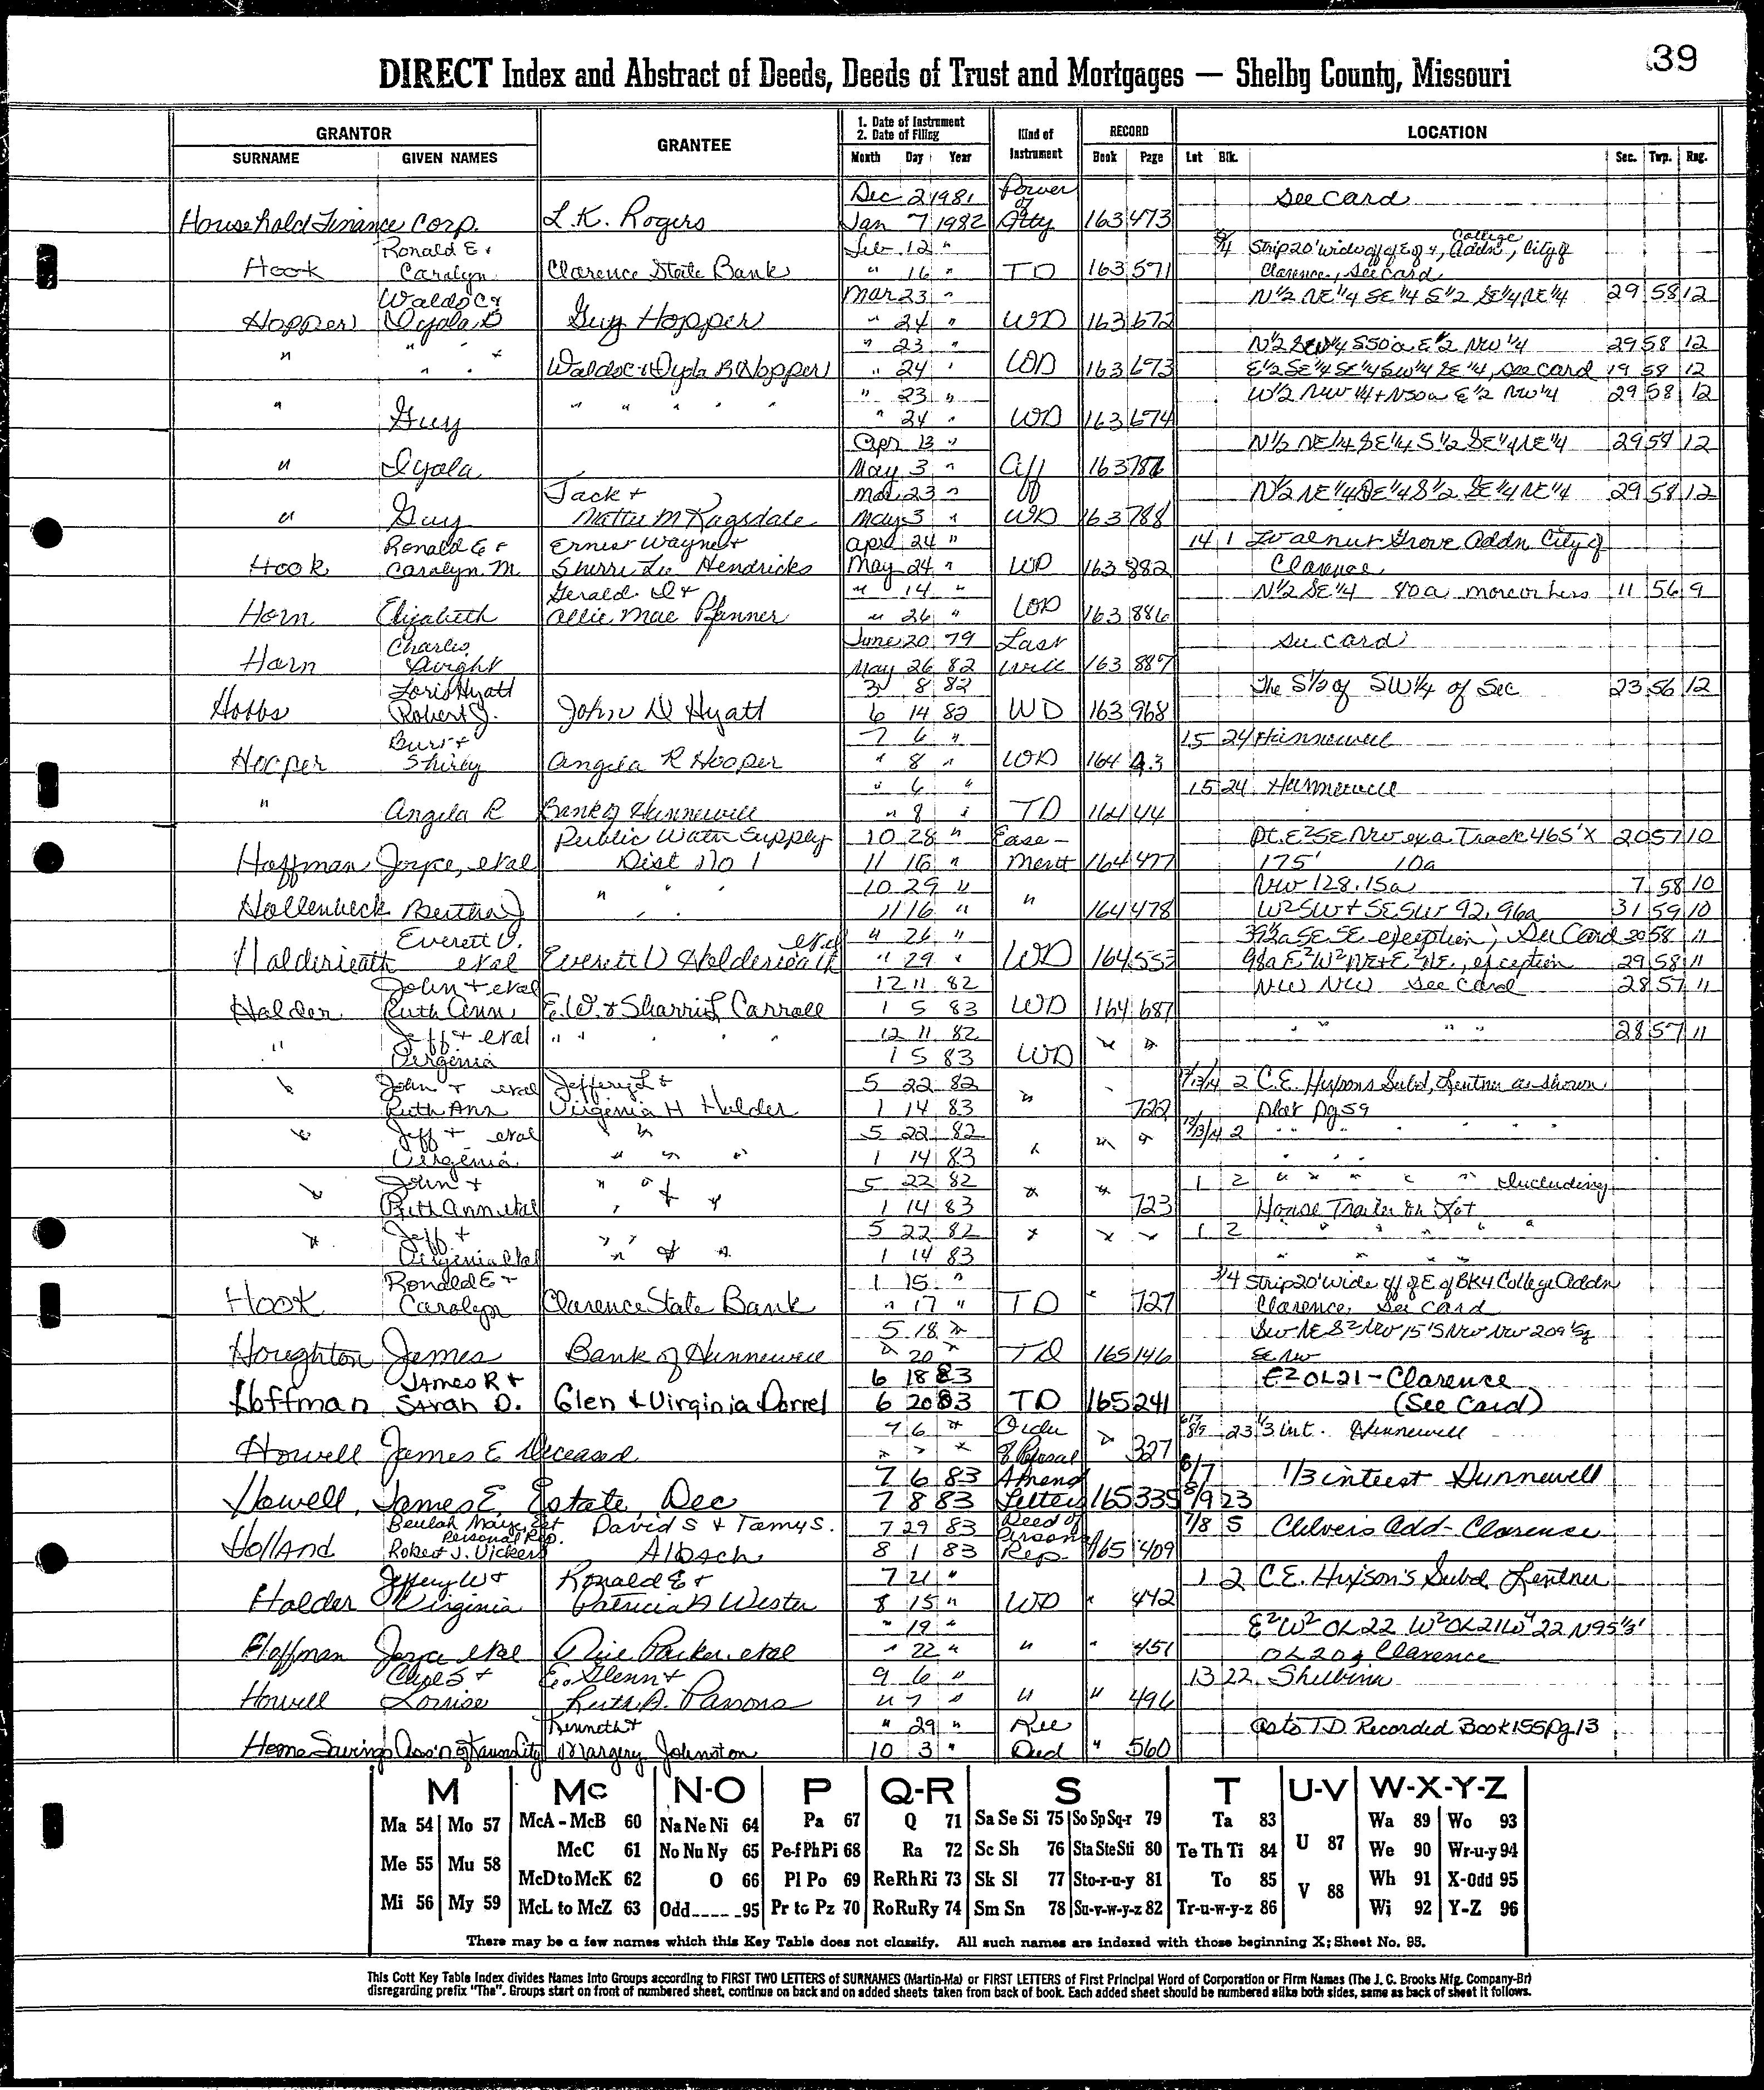 39
DIRECT Index and Abstract of Deeds, Deeds of Trust and Mortgages — Shelby County, Missouri
GRANTOR GRANTEE 1. Date of Instrument 2. Date of Filing Kind of Instrument RECORD LOCATION
SURNAME GIVEN NAMES Month Day Year Book Page Lot Blk. Sec. Twp. Rng.
Dec 2 1981 Power of See card
Household Finance Corp. L.K. Rogers Jan 7 1982 Atty 163 473
Ronald E + Feb 12 " Strip 20' wide off of E of 4, College Addn, City of
Hook Carolyn Clarence State Bank " 16 " TD 163 571 Clarence, See card
Waldo C + Mar 23 " N½ NE¼ SE¼ S½ SE¼ NE¼ 29 58 12
Hopper Guy Hopper " 24 " WD 163 672
" " " + " 23 " 29 58 12
" " 24 " WD 163 673 E½ SE¼ SE¼ SW¼ SE¼, see card 19 58 12
" 23 " W½ NW¼ + N50a E½ NW¼ 29 58 12
" Guy " " " " " " 24 " WD 163 674
Apr 13 " N½ NE¼ SE¼ S½ SE¼ NE¼ 29 58 12
" May 3 " Aff 163
Jack + Mar 23 " N½ NE¼ SE¼ S½ SE¼ NE¼ 29 58 12
" Guy Mattie M Ragsdale May 3 " WD 163 788
Ronald E + Ernest Wayne + April 24 " 14 1 Walnut Grove Addn City of
Hook Carolyn M. Sherri Lee Hendricks May 24 " WD 163 882 Clarence
Gerald D + " 14 " N½ SE¼ 80 a more or less 11 56 9
Horn Elizabeth Allie Mae Pfanner " 26 " WD 163 886
Charles June 20 79 Last See card
Horn Dwight May 26 82 Will 163 887
Loris Hyatt 3 8 82 The S½ of SW¼ of Sec 23 56 12
Hobbs Robert J. John D Hyatt 6 14 82 WD 163 968
Burr + 7 6 " 15 24 Hunnewell
Hooper Shirley Angela R Hooper " 8 " WD 164 43
" 6 " 15 24 Hunnewell
" Angela R Bank of Hunnewell " 8 " TD 164 44
Public Water Supply 10 28 " Ease- Pt. E²SE NW ex a Track 465' X 20 57 10
Hoffman Joyce, etal Dist No 1 11 16 " ment 164 477 175' 10a
" " " 10 29 " NW 128.15a 7 58 10
Hollenbeck Bertha J " " 11 16 " " 164 478 W²SW + SESW 92.96a 31 59 10
Everett V. etal " 26 " 39½a SE SE exception; See Card 30 58 11
Holderieath etal Everett V Holderieath " 29 " WD 164 553 98a E²W²NE + E²NE, exception 29 58 11
John + etal 12 11 82 NW NW See Card 28 57 11
Holder Ruth Ann E.W. + Sharri L Carroll 1 5 83 WD 164 687
Jeff + etal " " " " " 12 11 82 " " " " 28 57 11
" Virginia 1 5 83 WD " "
John + etal Jeffery L + 5 22 82 12/13/14 2 C.E. Hixsons Subd, Lentner as shown
" Ruth Ann Virginia H Holder 1 14 83 " " 722 Plat Pg 59
Jeff + etal " 5 22 82 " " 12/13/14 2 " " " " "
" Virginia " " " 1 14 83 " " " "
John + " " 5 22 82 1 2 " " " " " including
" Ruth Ann etal " + " 1 14 83 " " 723 House Trailer on Lot
Jeff + " " 5 22 82 1 2 " " " " "
" Virginia etal " + " 1 14 83 " " " " " "
Ronald E + 1 15 " 3/4 Strip 20' wide off of E of BK4 College Addn
Hook Carolyn Clarence State Bank " 17 " TD " 727 Clarence, See Card
5 18 " SW NE S²NW 15'S NW NW 209'Sq
Houghton James Bank of Hunnewell " 20 " TD 165 146 SE NW
James R + 6 18 83 E² OL21 - Clarence
Hoffman Sarah D. Glen + Virginia Dorrel 6 20 83 TD 165 241 (See Card)
7 6 " Order 6/7 8/9 23 1/3 int. Hunnewell
Howell James E Deceased " " " of Refusal " 327
7 6 83 Amend 6/7 1/3 interest Hunnewell
Howell, James E Estate, Dec 7 8 83 Letters 165 335 8/9 23
Beulah Mayz, Est David S + Tamy S. 7 29 83 Deed of 7/8 5 Chilvers Add - Clarence
Personal Rep. Personal
Holland Robert J. Vickers Albach 8 1 83 Rep. 165 409
Jeffery W + Ronald E + 7 21 " 1 2 C.E. Hixson's Subd Lentner
Holder Virginia Patricia A Wester 8 15 " WD " 442
" 19 " E²W² OL22 W²OL21 22 N95⅓'
Hoffman Joyce etal Parker, etal " 22 " " " 451 OL20 of Clarence
Clyde S + E. Glenn + 9 6 " 13 22 Shelbina
Howell Louise Ruth A. Parsons " 7 " " " 496
Kenneth + " 29 " Rel as to T.D. Recorded Book 155 Pg. 13
Home Savings Ass'n of Kansas City Margery Johnston 10 3 " Deed " 560
M Mc N-O P Q-R S T U-V W-X-Y-Z
Ma 54 Mo 57 McA - McB 60 Na Ne Ni 64 Pa 67 Q 71 Sa Se Si 75 So Sp Sq-r 79 Ta 83 Wa 89 Wo 93
McC 61 No Nu Ny 65 Pe-f Ph Pi 68 Ra 72 Sc Sh 76 Sta Ste Sti 80 Te Th Ti 84 U 87 We 90 Wr-u-y 94
Me 55 Mu 58 McD to McK 62 O 66 Pl Po 69 Re Rh Ri 73 Sk Sl 77 Sto-r-u-y 81 To 85 V 88 Wh 91 X-Odd 95
Mi 56 My 59 McL to McZ 63 Odd----- -95 Pr to Pz 70 Ro Ru Ry 74 Sm Sn 78 Su-v-w-y-z 82 Tr-u-w-y-z 86 Wi 92 Y-Z 96
There may be a few names which this Key Table does not classify. All such names are indexed with those beginning X; Sheet No. 95.
This Cott Key Table Index divides Names Into Groups according to FIRST TWO LETTERS of SURNAMES (Martin-Ma) or FIRST LETTERS of First Principal Word of Corporation or Firm Names (The J. C. Brooks Mfg. Company-Br)
disregarding prefix "The". Groups start on front of numbered sheet, continue on back and on added sheets taken from back of book. Each added sheet should be numbered alike both sides, same as back of sheet it follows.